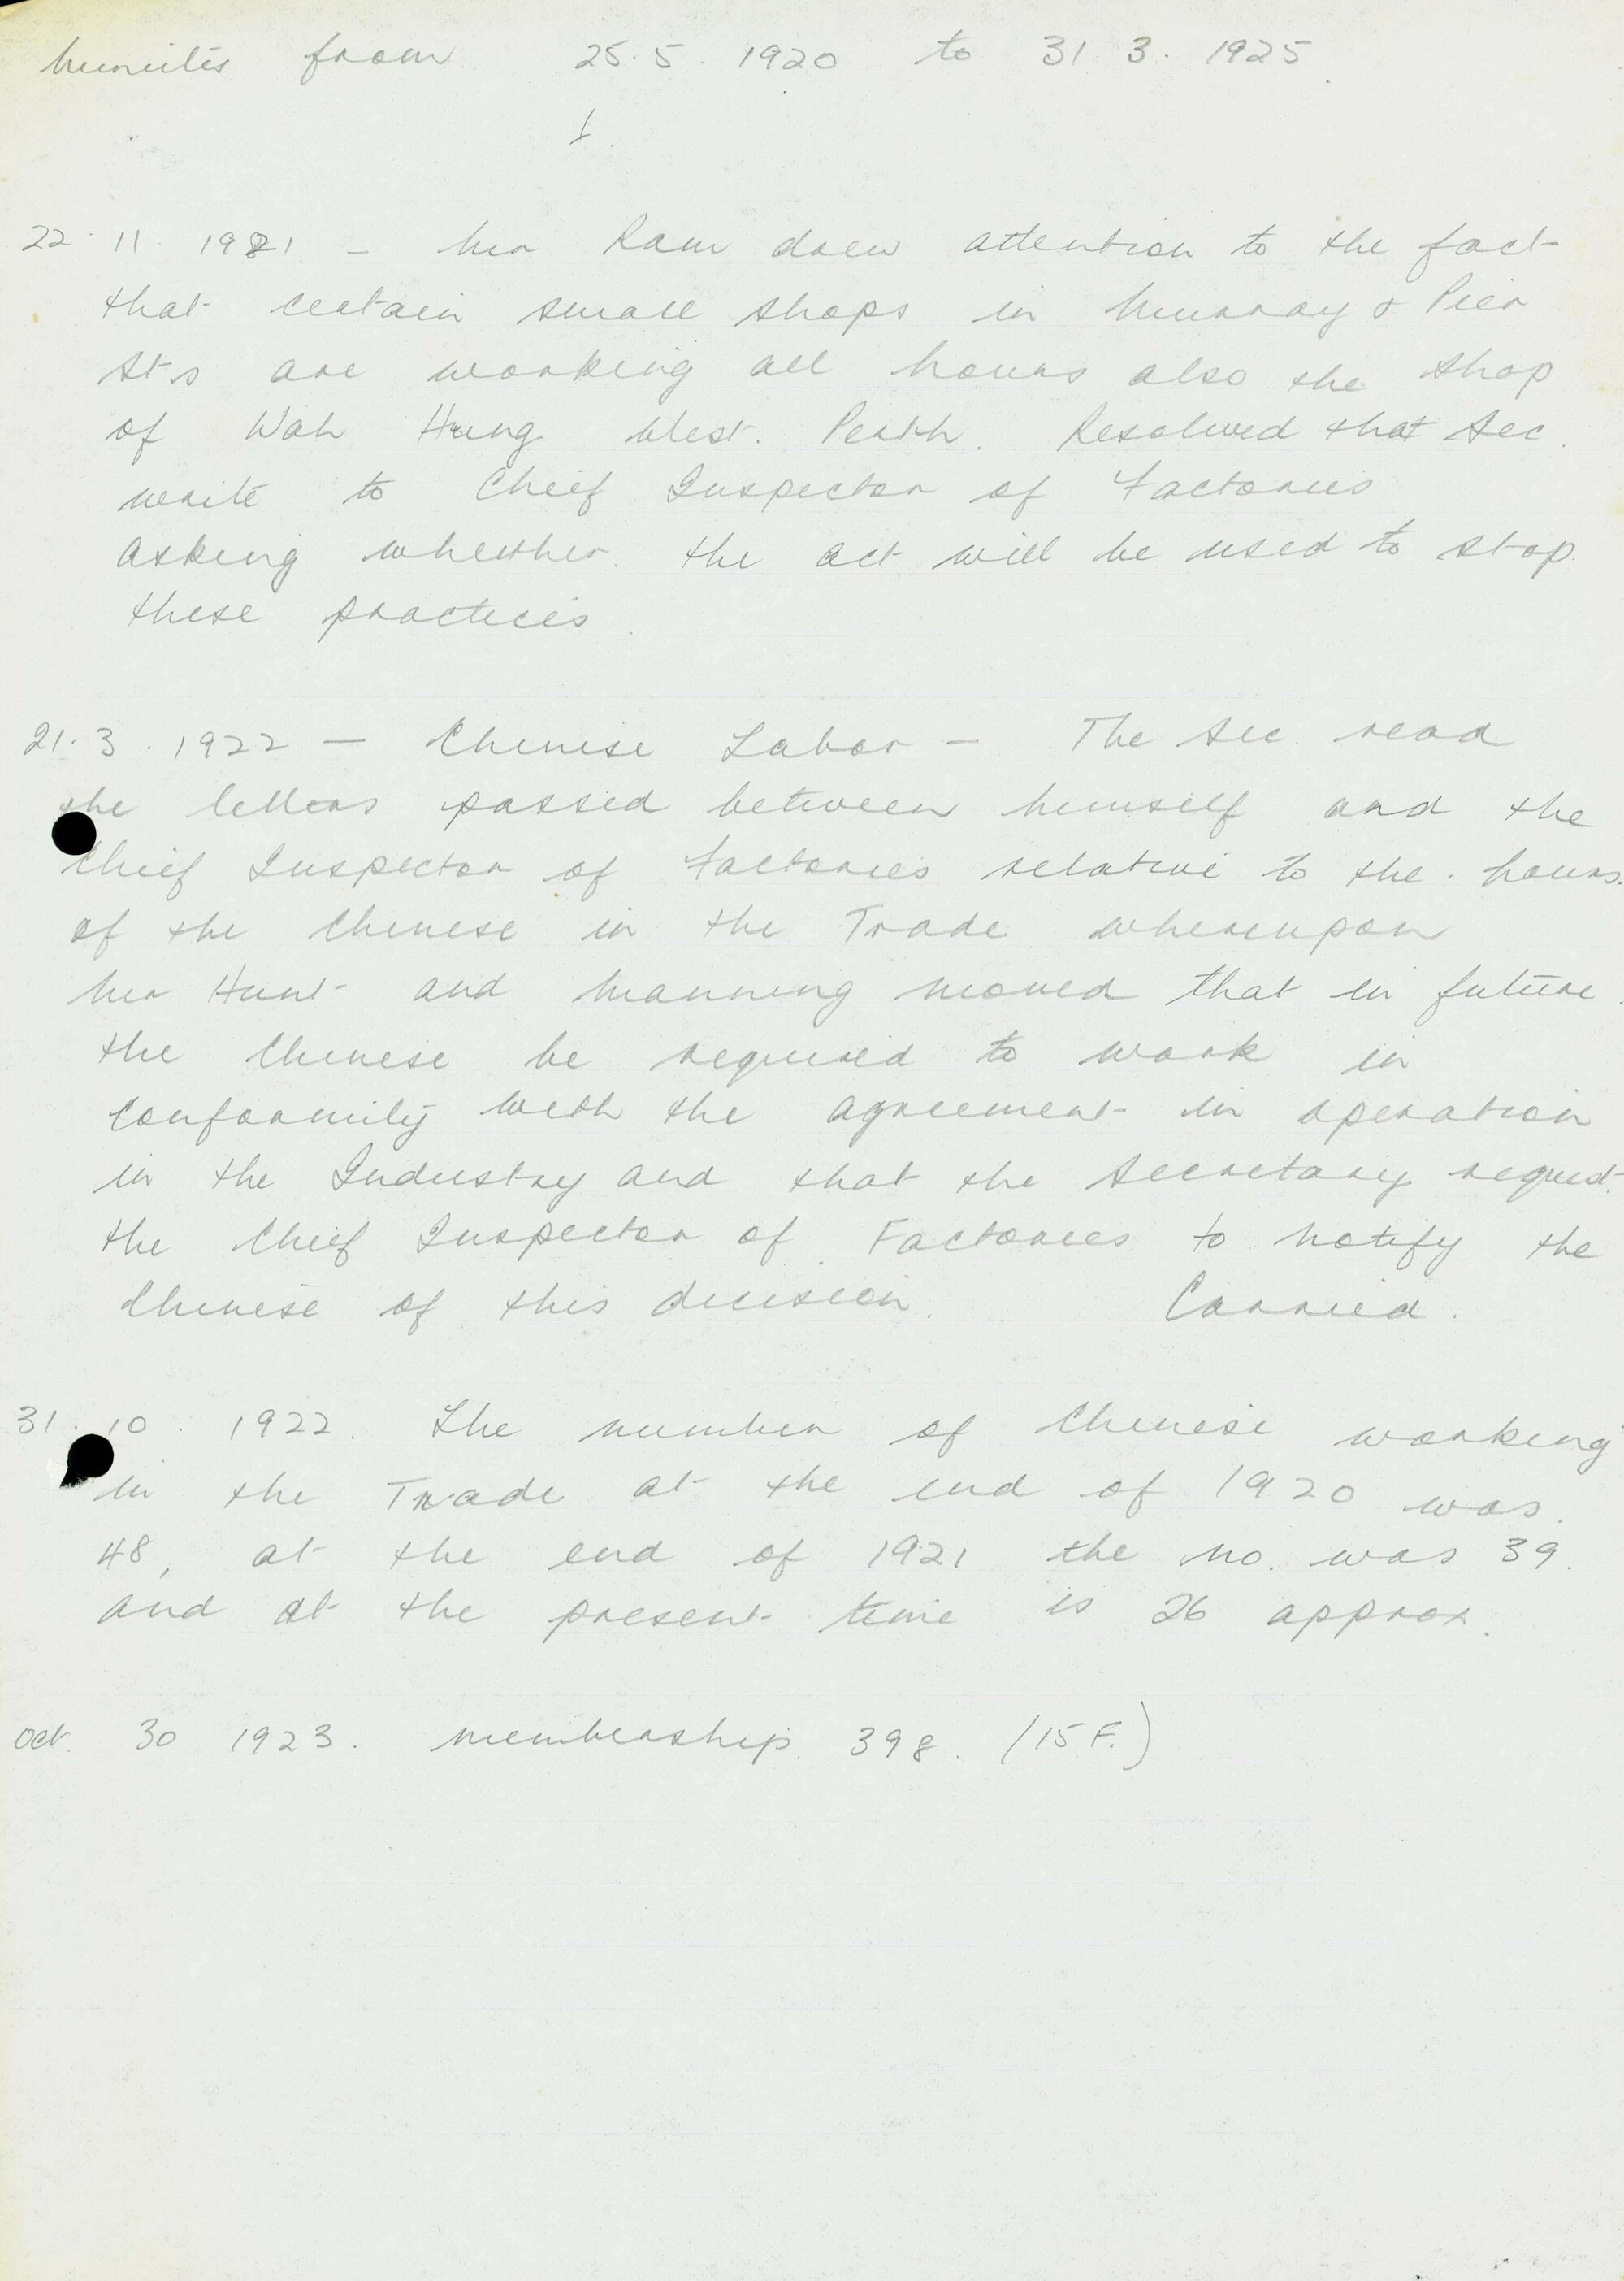 Minutes from 25.5.1920 to 31.3.1925.
22.11.1921. - Mr Ram drew attention to the fact
that certain small shops in Murray & Pier
Sts are working all hours also the shop
of Wah Hung West. Perth. Resolved that Sec.
write to Chief Inspector of Factories
asking whether the act will be used to stop
these practices.
21.3.1922 - Chinese Labor - The Sec. read
the letters passed between himself and the
Chief Inspector of Factories relative to the hours
of the Chinese in the Trade whereupon
Mr Hunt and Manning moved that in future
the Chinese be required to work in
conformity with the agreement in operation
in the Industry and that the Secretary request
the Chief Inspector of Factories to notify the
Chinese of this decision. Carried.
31.10.1922. The number of Chinese working
in the Trade at the end of 1920 was
48, at the end of 1921 the no. was 39.
and at the present time is 26 approx.
Oct. 30 1923. membership 398. (15 F.)